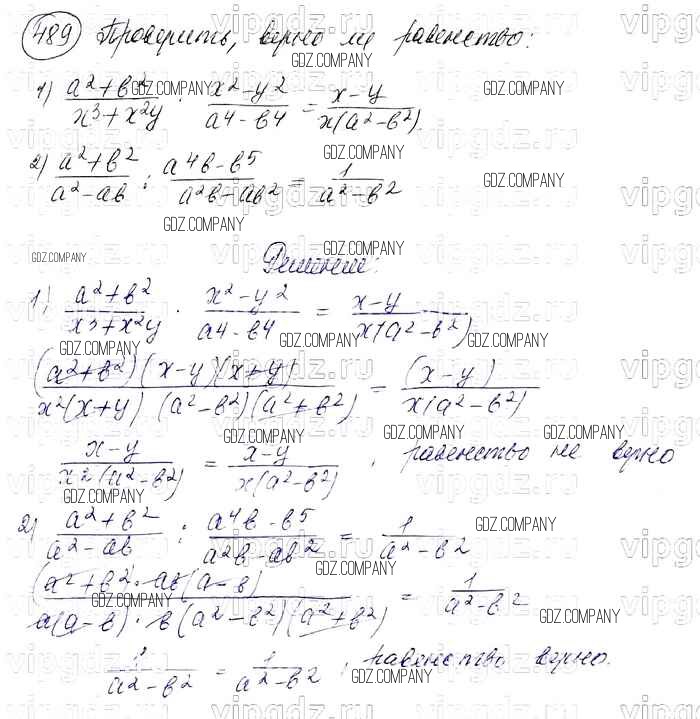 489 Проверить, верно ли равенство:
1) (a²+b²)/(x³+x²y) · (x²-y²)/(a4-b4) = (x-y)/(x(a²-b²))
2) (a²+b²)/(a²-ab) : (a4b-b5)/(a²b-ab²) = 1/(a²-b²)
Решение:
1) (a²+b²)/(x3+x²y) · (x²-y²)/(a4-b4) = (x-y)/(x(a²-b²))
(a²+b²)(x-y)(x+y)/(x²(x+y)(a²-b²)(a²+b²)) = (x-y)/(x(a²-b²))
(x-y)/(x2(a²-b²)) = (x-y)/(x(a²-b²)), равенство не верно
2) (a²+b²)/(a²-ab) : (a4b-b5)/(a²b-ab²) = 1/(a²-b²)
(a²+b²)·ab(a-b)/(a(a-b)·b(a²-b²)(a²+b²)) = 1/(a²-b²)
1/(a²-b²) = 1/(a²-b²), равенство верно.
GDZ.COMPANY
vipgdz.ru